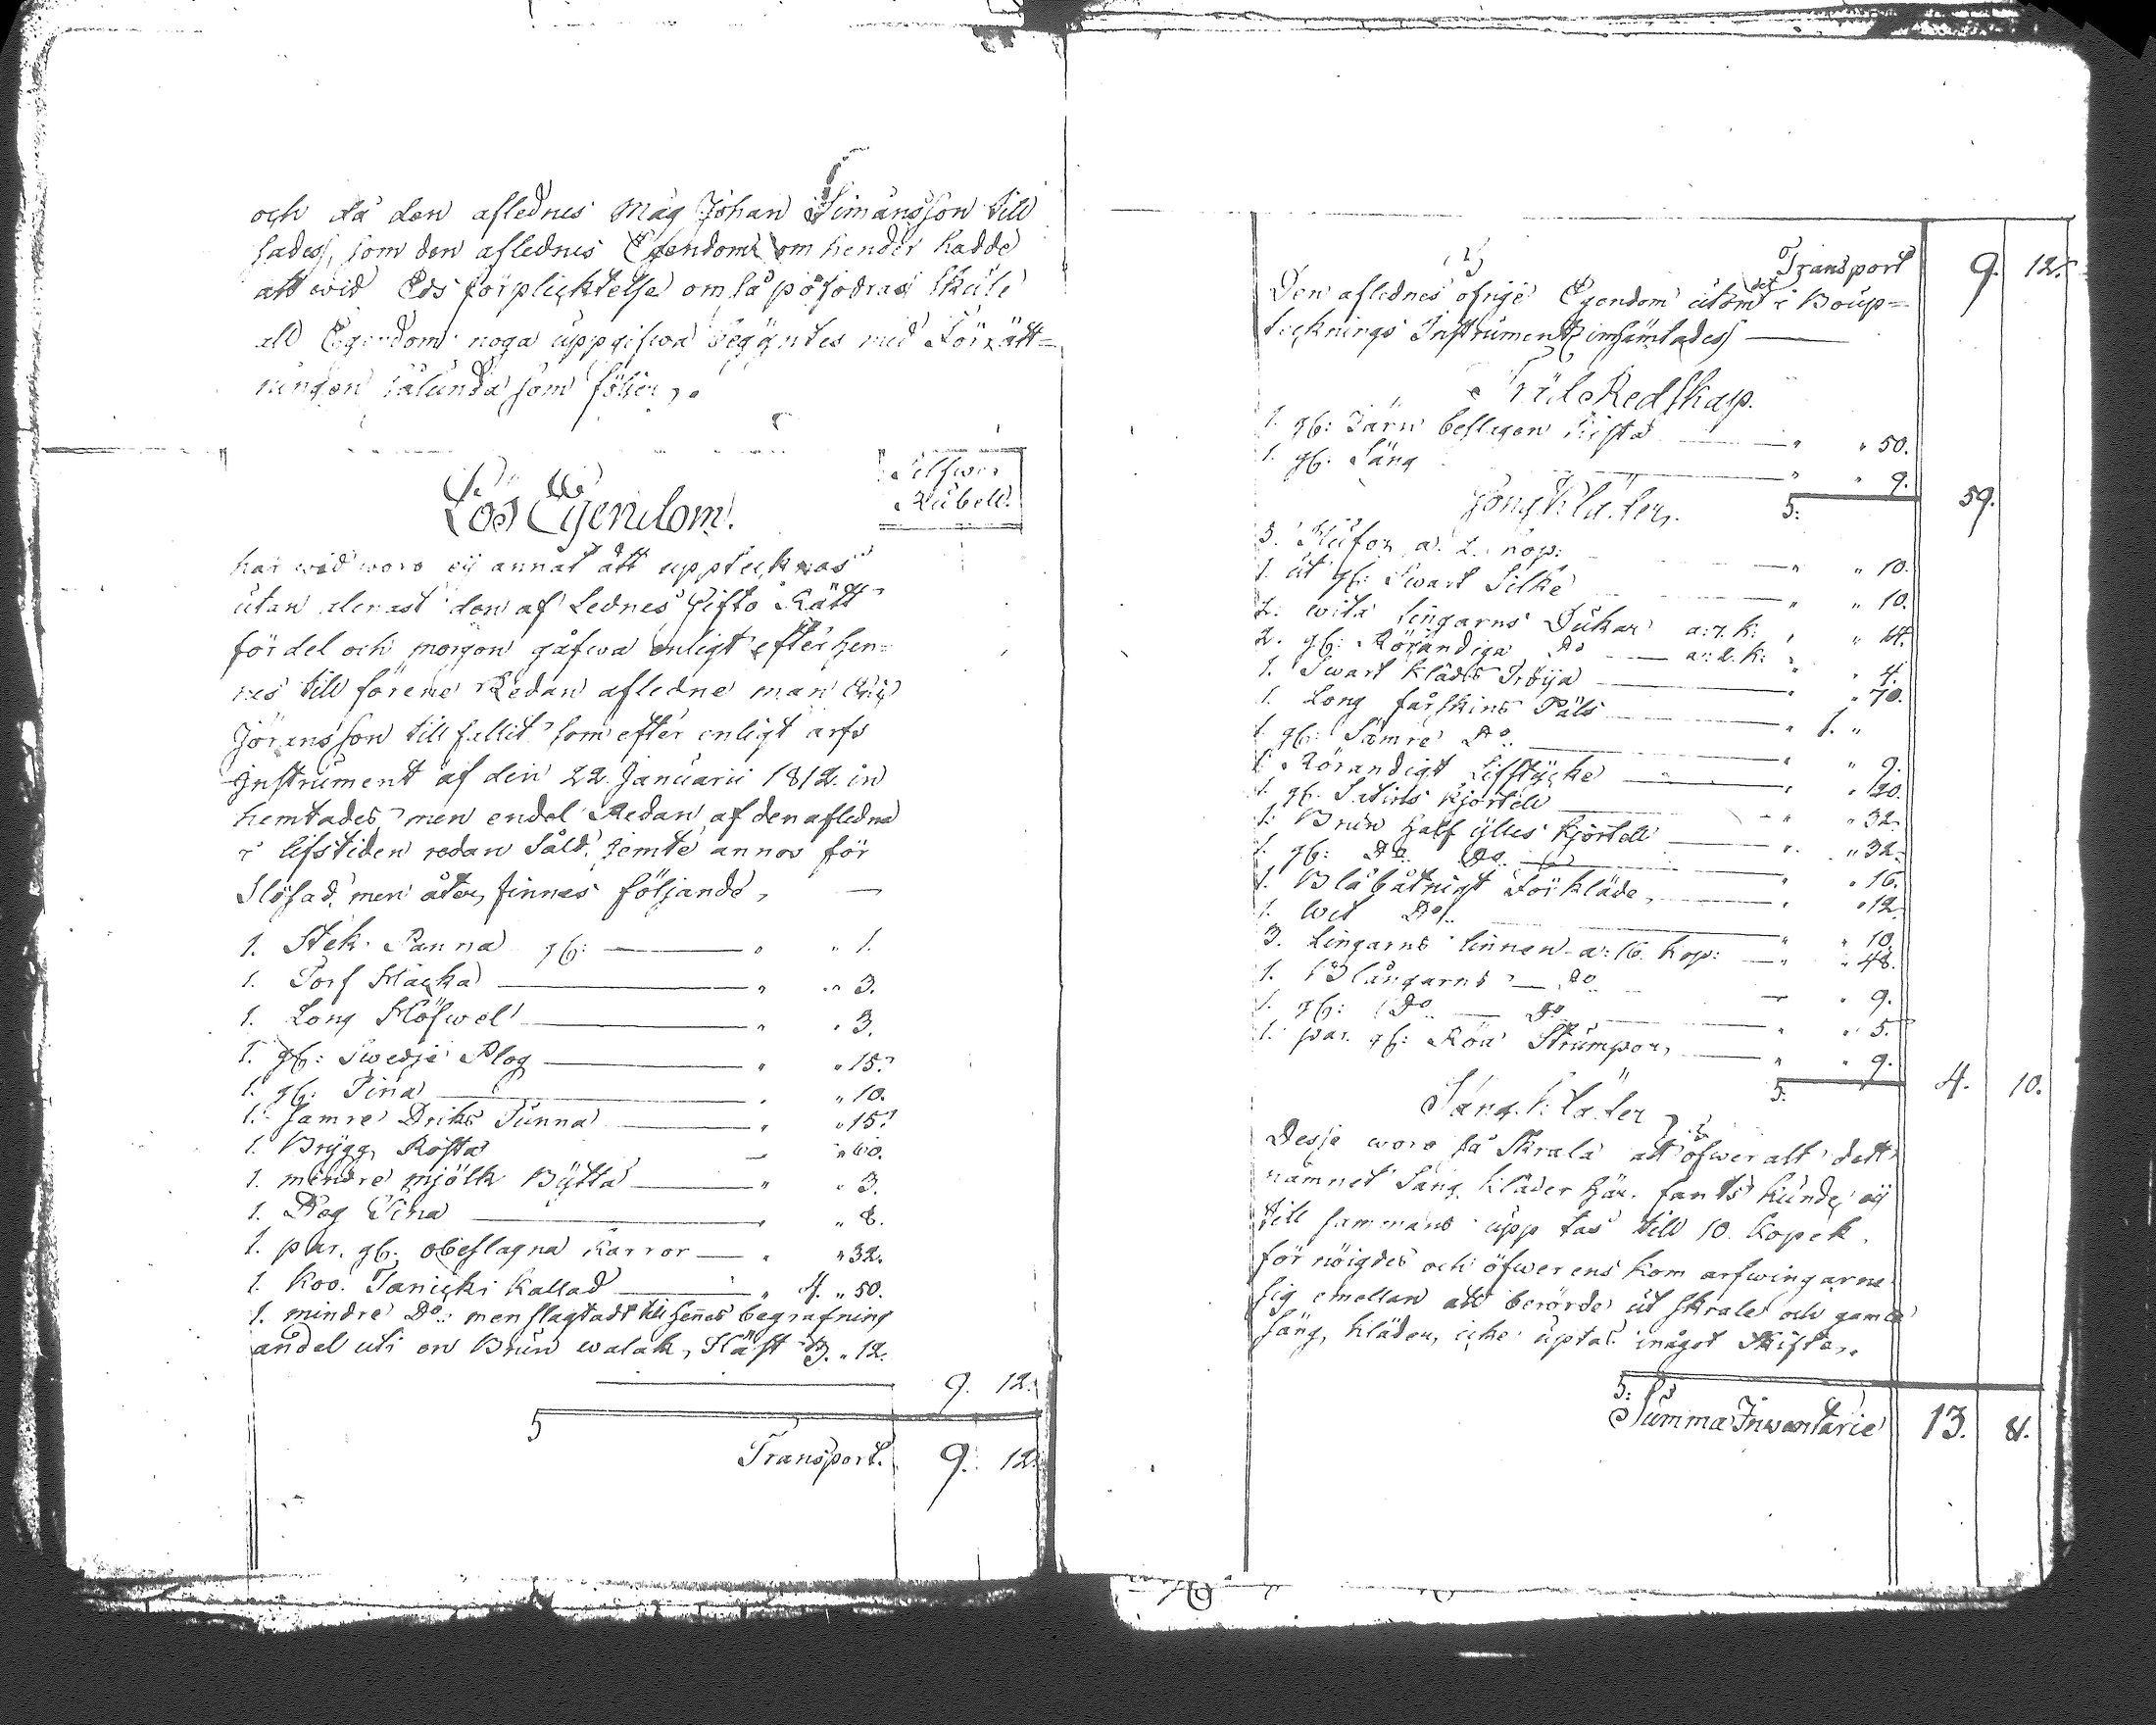 och då den aflednes Måg Johan Simånsson till
sades, som den aflednes Egendom om hender hadde
att wid Eds förplicktelse om så påfodras skule
all Egendom noga uppgifwa begyntes med Förrätt=
ningen sålunda som följer,
Silfwer
Rubell.
Lös Egendom.
har wid woro ej annat att upptecknas
utan alenast den af Lednes Gifto Rätt
fördel och morgon gåfwa enligt efter hen=
nes till förene Redan afledne man
Jöransson till fallit som efter enligt arfs
Instrument af den 22 Januarii 1812. in
hemtades men endel Redan af den afledna
i lifstiden redan såld. jemte annor för
Slösad, men åter finnes följande,
1. Stek Panna gl: " " 1.
1. Torf Hacka " " 3.
1. Long Höfwel " " 3.
1. gl: Swedje Plog " " 15.
1. gl: Tina " " 10.
1. Samre Driks Tunna " " 15.
1. Brygg Rosta " 60.
1. mindre mjölk Bytta " " 3.
1. Deg Tina " " 8.
1. par. gl. obeslagna Kärror " " 32.
1. Koo. Tanicki Kallad " 4. " 50.
1. mindre Do: men slagtadt till hennes begrafning
andel uti en Brun walak, Häst 3. " 12.
9. 12.
S
Transport. 9. 12.
Transport 9. 12.
Den aflednes öfrige Egendom utom det i Boup=
tecknings Instrument inhämtades
Träl Redskap.
1. gl: Järn beslagen Kista " " 50.
1. gl. Säng " " 9.
S: 59.
Gong Kläder,
5. Hufor a. 2. kop: " " 10.
1. ut gl: Swart Silke " " 10.
2. wita lingarns Dukar a: 7. K: " " 14.
2. gl: Rörandiga Do a: 2. K: " " 4.
1. Swart Klädes Tröja " " 70.
1. Long fårskins Päls " 1. "
1. gl: Sämre Do. " " 9.
1. Rörandigt Lifstycke " " 20.
1. gl. Satins Kjortell " " 32.
1. Brun half ylles Kjortell " " 32.
1. gl: Do. Do. " " 16.
1. Blåbåtnigt Förkläde, " " 12
1. wit Do. " " 10.
3. Lingarns linnen a: 16. Kop: " " 48.
1. Blångarns Do " 9.
1. gl: Do Do " " 5.
1. par. gl: Röa Strumpor, " " 9.
S: 4. 10.
Säng Kläder
Desse woro så Skrala att öfwer alt dett
namnet Säng kläder här fants kunde ej
till sammans upp tas till 10. Kopek.
för nöigdes och öfwerens kom arfwingarne
sig emellan att berörde ut skrale och gamla
säng, kläder, icke uptas i något Skifte.
S:
Summa Inwentarie 13. 81.